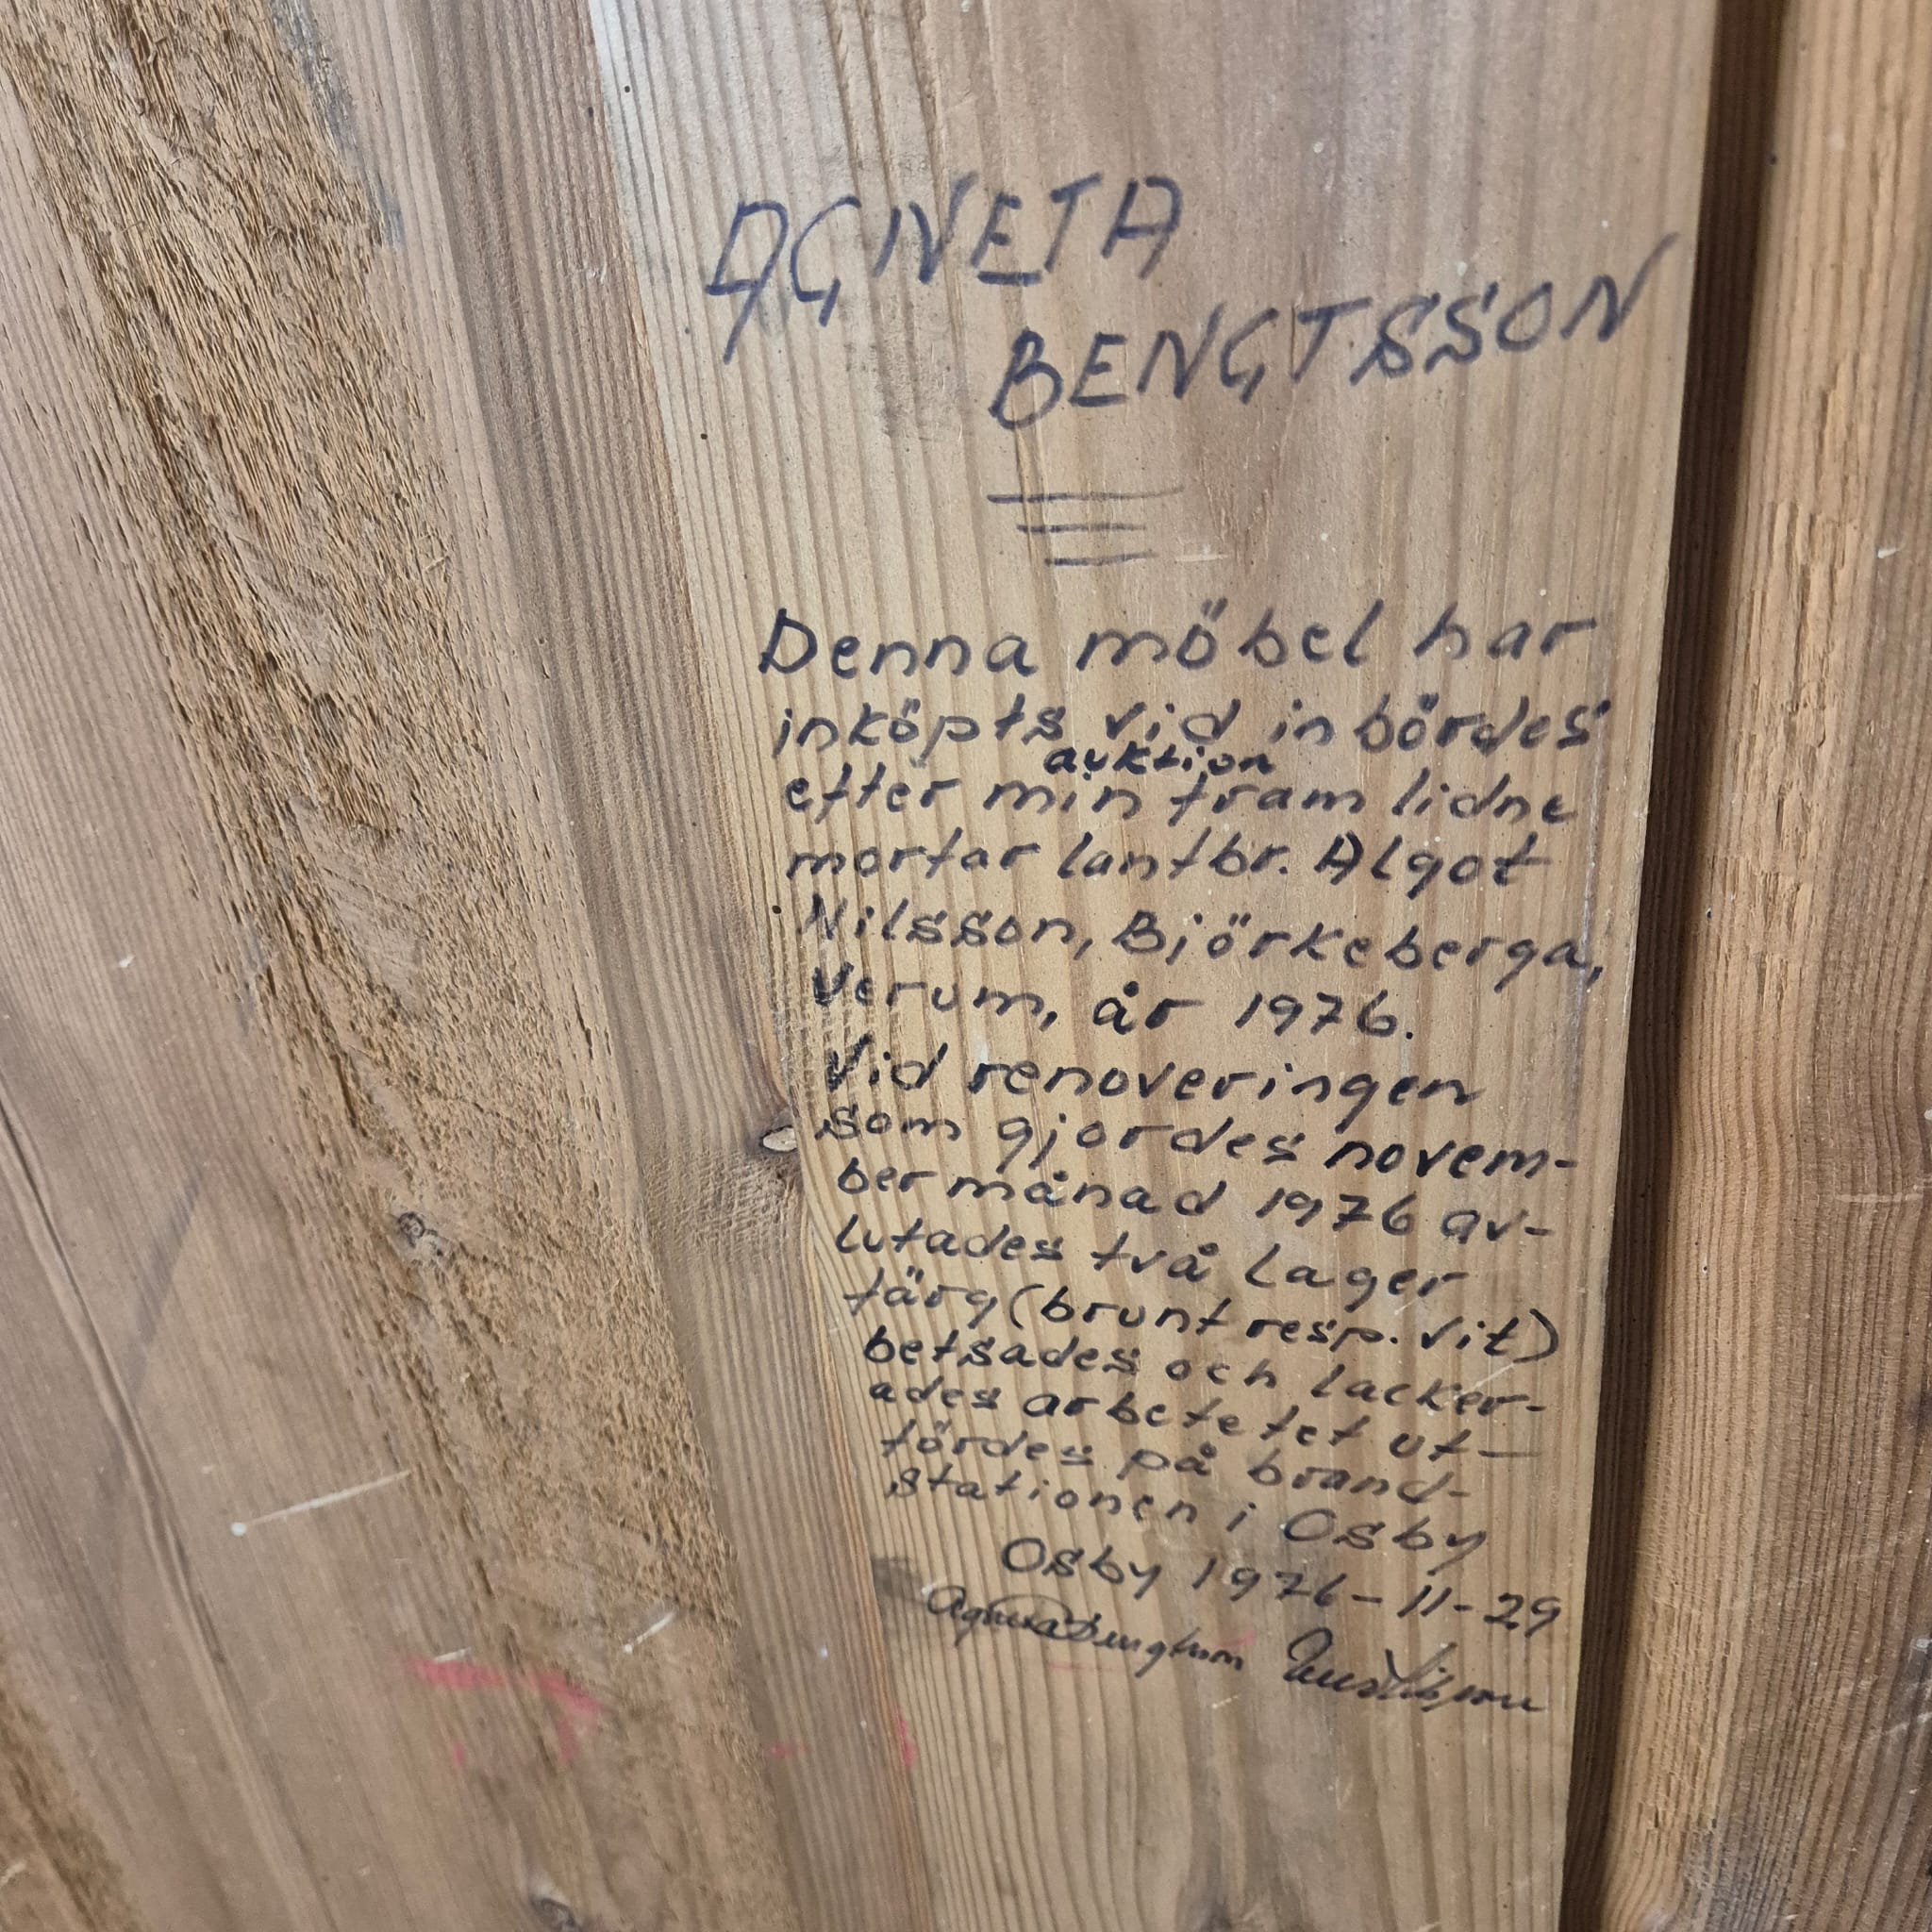 AGNETA
BENGTSSON
Denna möbel har
inköpts vid inbördes
auktion
efter min fram lidne
morfar lantbr. Algot
Nilsson, Björkeberga,
Verum, år 1976.
Vid renoveringen
som gjordes novem-
ber månad 1976 av-
lutades två lager
färg (brunt resp. vit)
betsades och lacker-
ades arbetetet ut-
fördes på brand-
stationen i Osby
Osby 1976-11-29
Agneta Bengtsson